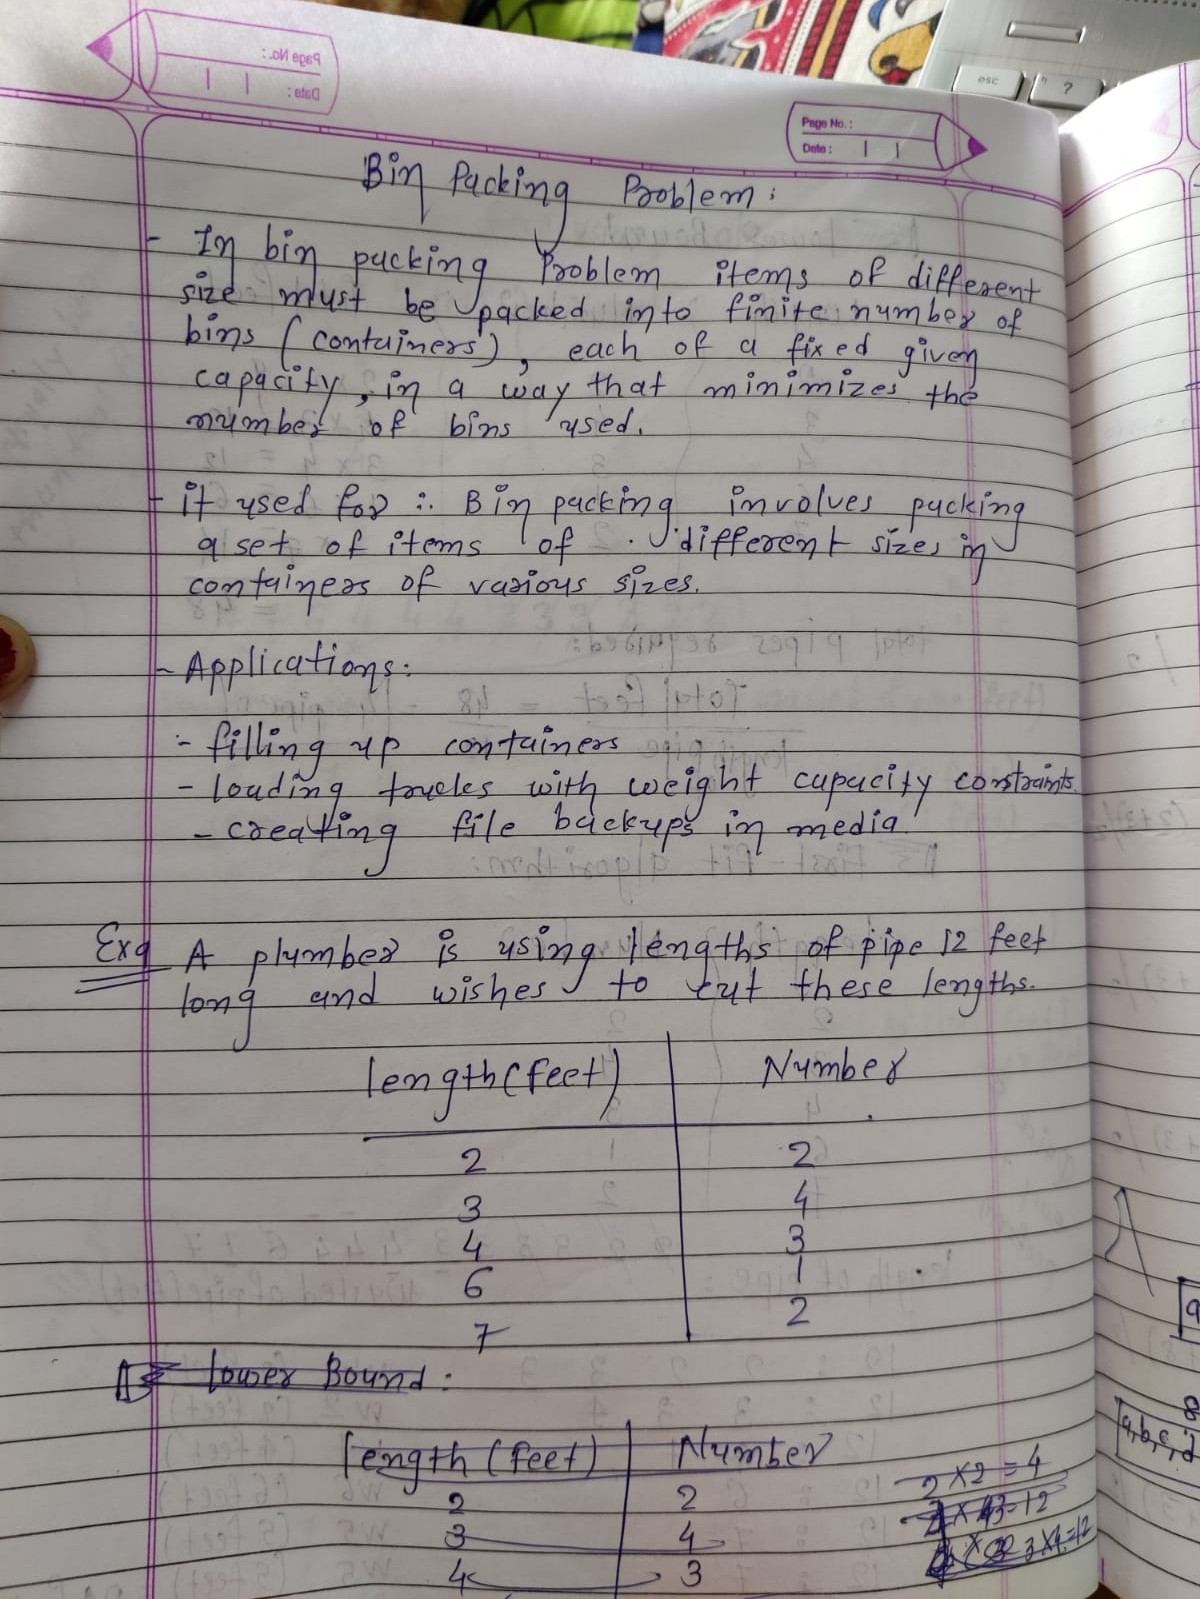 Page No.:
Date:
esc
?
Page No.:
Date:
Bin Packing Problem:
- In bin packing Problem items of different
size must be packed into finite number of
bins (containers), each of a fixed given
capacity, in a way that minimizes the
number of bins used.
- it used for : Bin packing involves packing
a set of items of different sizes in
containers of various sizes.
- Applications:
- filling up containers
- loading trucks with weight capacity constraints
- creating file backups in media
Exa A plumber is using lengths of pipe 12 feet
long and wishes to cut these lengths.
length (feet) Number
2 2
3 4
4 3
6 1
7 2
Lower Bound:
length (feet) Number
2 2
3 4
4 3
2 × 2 = 4
3×4=12
a,b,c,d